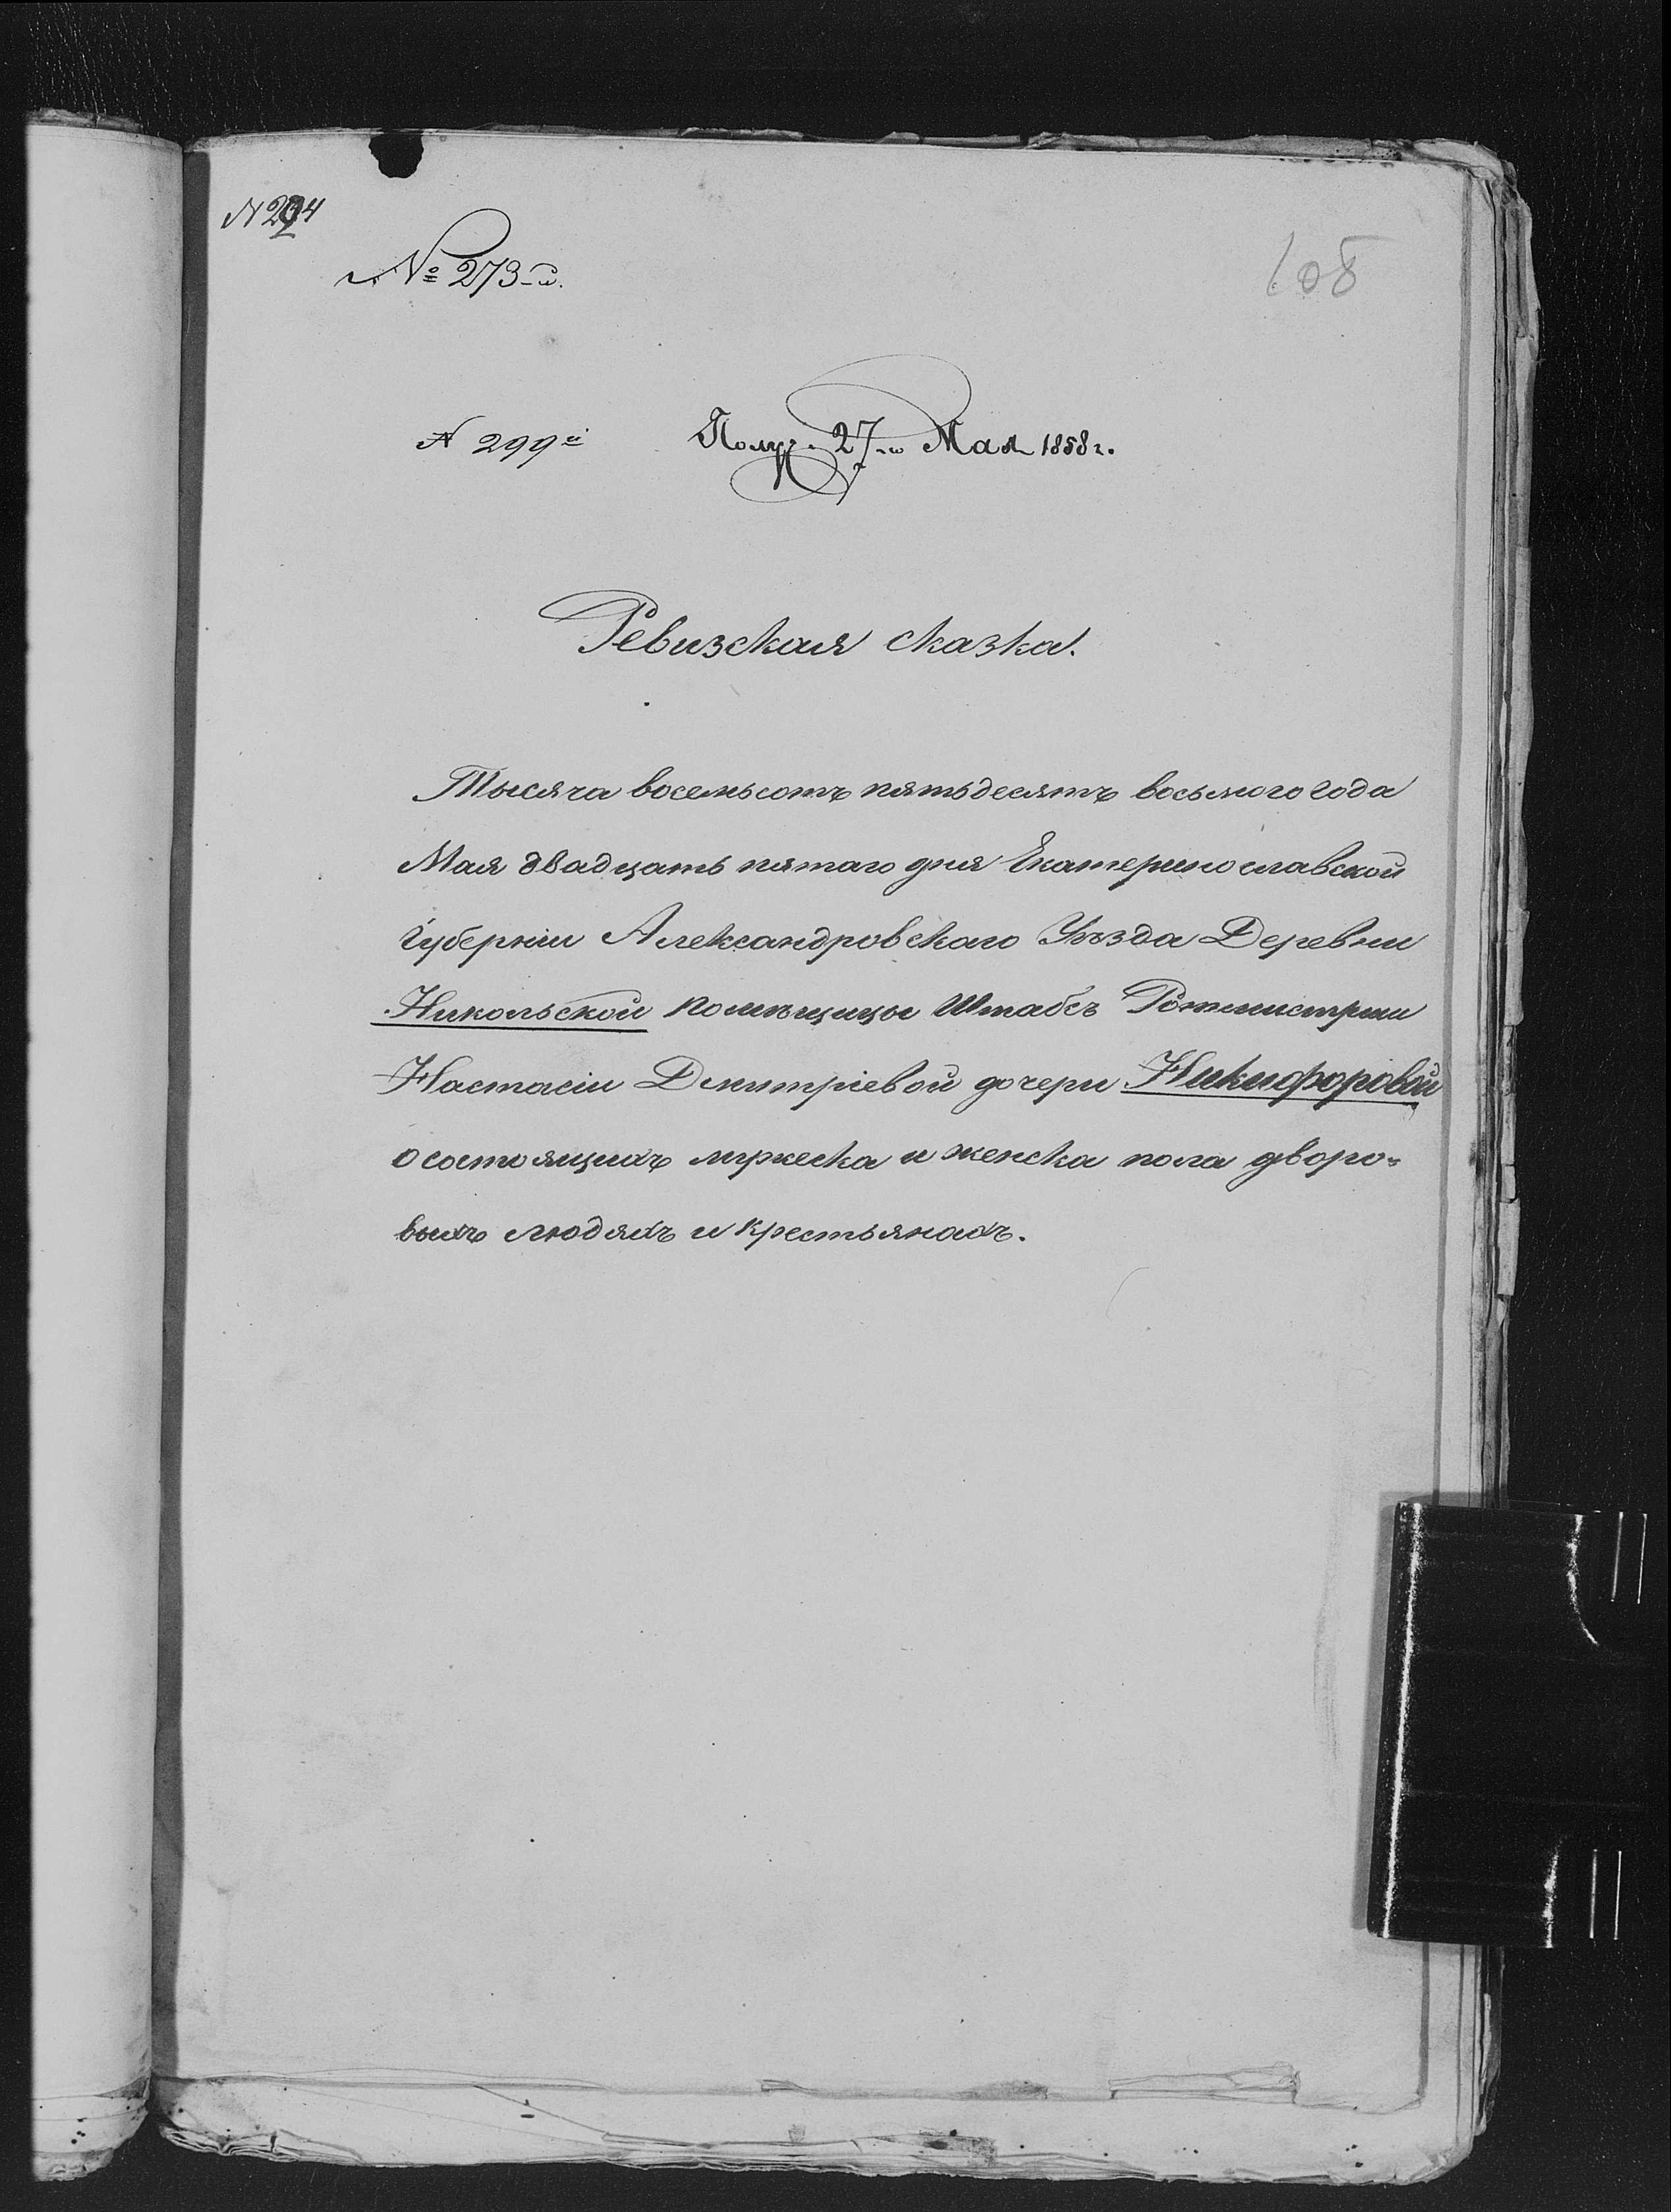 N 294
№ 273-й.
108
N 299й
Получ. 27-го Мая 1858 г.
Ревизская сказка.
Тысяча восемьсотъ пятьдесятъ восьмого года
Мая двадцать пятаго дня Екатеринославской
Губерніи Александровскаго Уѣзда Деревни
Никольской помѣщицы Штабсъ Ротмистрши
Настасіи Дмитріевой дочери Никифоровой
о состоящихъ мужеска и женска пола дворо=
выхъ людяхъ и крестьянахъ.